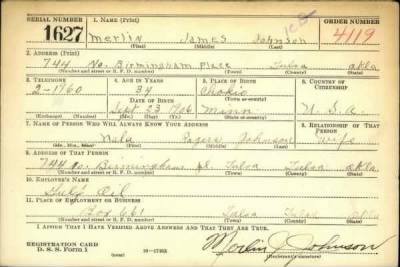 SERIAL NUMBER 1. NAME (Print) ORDER NUMBER
1627 Merlin James Johnson 4119
(First) (Middle) (Last)
2. ADDRESS (Print)
744 No. Birmingham Place Tulsa Okla
(Number and street or R. F. D. number) (Town) (County) (State)
3. TELEPHONE 4. AGE IN YEARS 5. PLACE OF BIRTH 6. COUNTRY OF CITIZENSHIP
2-1760 34 Chokio
DATE OF BIRTH (Town or county)
Sept 23 1906 Minn U.S.A.
(Exchange) (Number) (Mo.) (Day) (Yr.) (State or country)
7. NAME OF PERSON WHO WILL ALWAYS KNOW YOUR ADDRESS 8. RELATIONSHIP OF THAT PERSON
Johnson Wife
(Mr., Mrs., Miss) (First) (Middle) (Last)
9. ADDRESS OF THAT PERSON
744 no. Birmingham pl. Tulsa Tulsa Okla
(Number and street or R. F. D. number) (Town) (County) (State)
10. EMPLOYER'S NAME
Gulf Oil
11. PLACE OF EMPLOYMENT OR BUSINESS
Box 661 Tulsa Tulsa Okla
(Number and street or R. F. D. number) (Town) (County) (State)
I AFFIRM THAT I HAVE VERIFIED ABOVE ANSWERS AND THAT THEY ARE TRUE.
REGISTRATION CARD
D. S. S. Form 1 16—17105 Merlin J Johnson
(Registrant's signature)